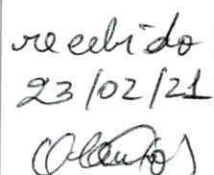 recebido
23/02/21